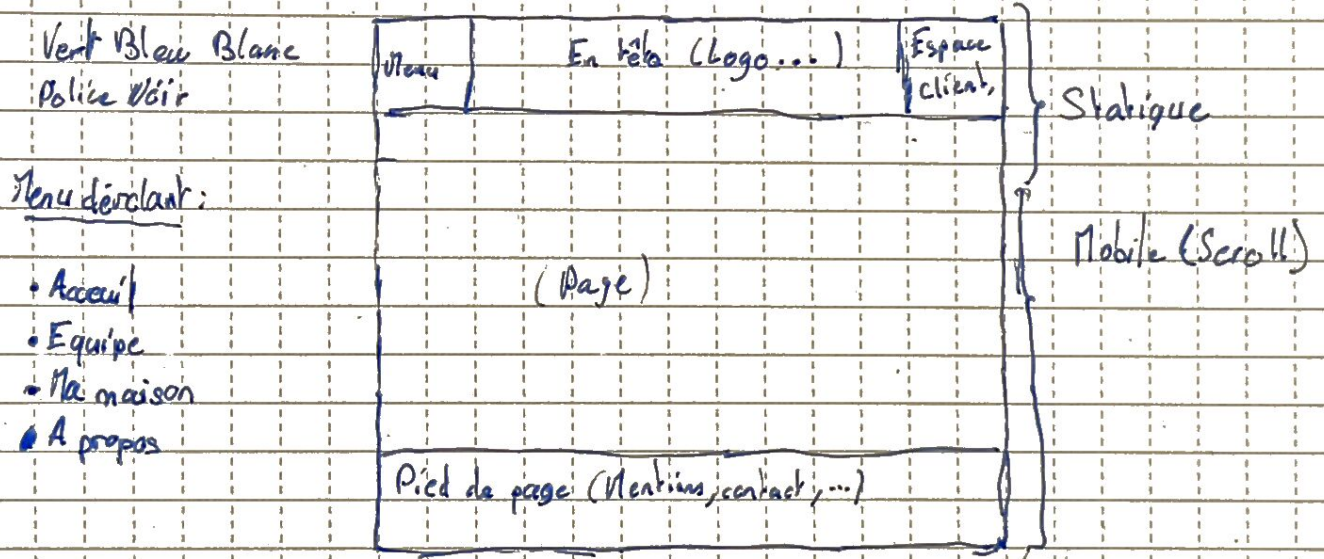 Vert Bleu Blanc
Police Noir
Menu déroulant :
• Acceuil
• Equipe
• Ma maison
• A propos
Menu
En tête (Logo...)
Espace
client,
(Page)
Pied de page (Mentions, contact, ...)
Statique
Mobile (Scroll)